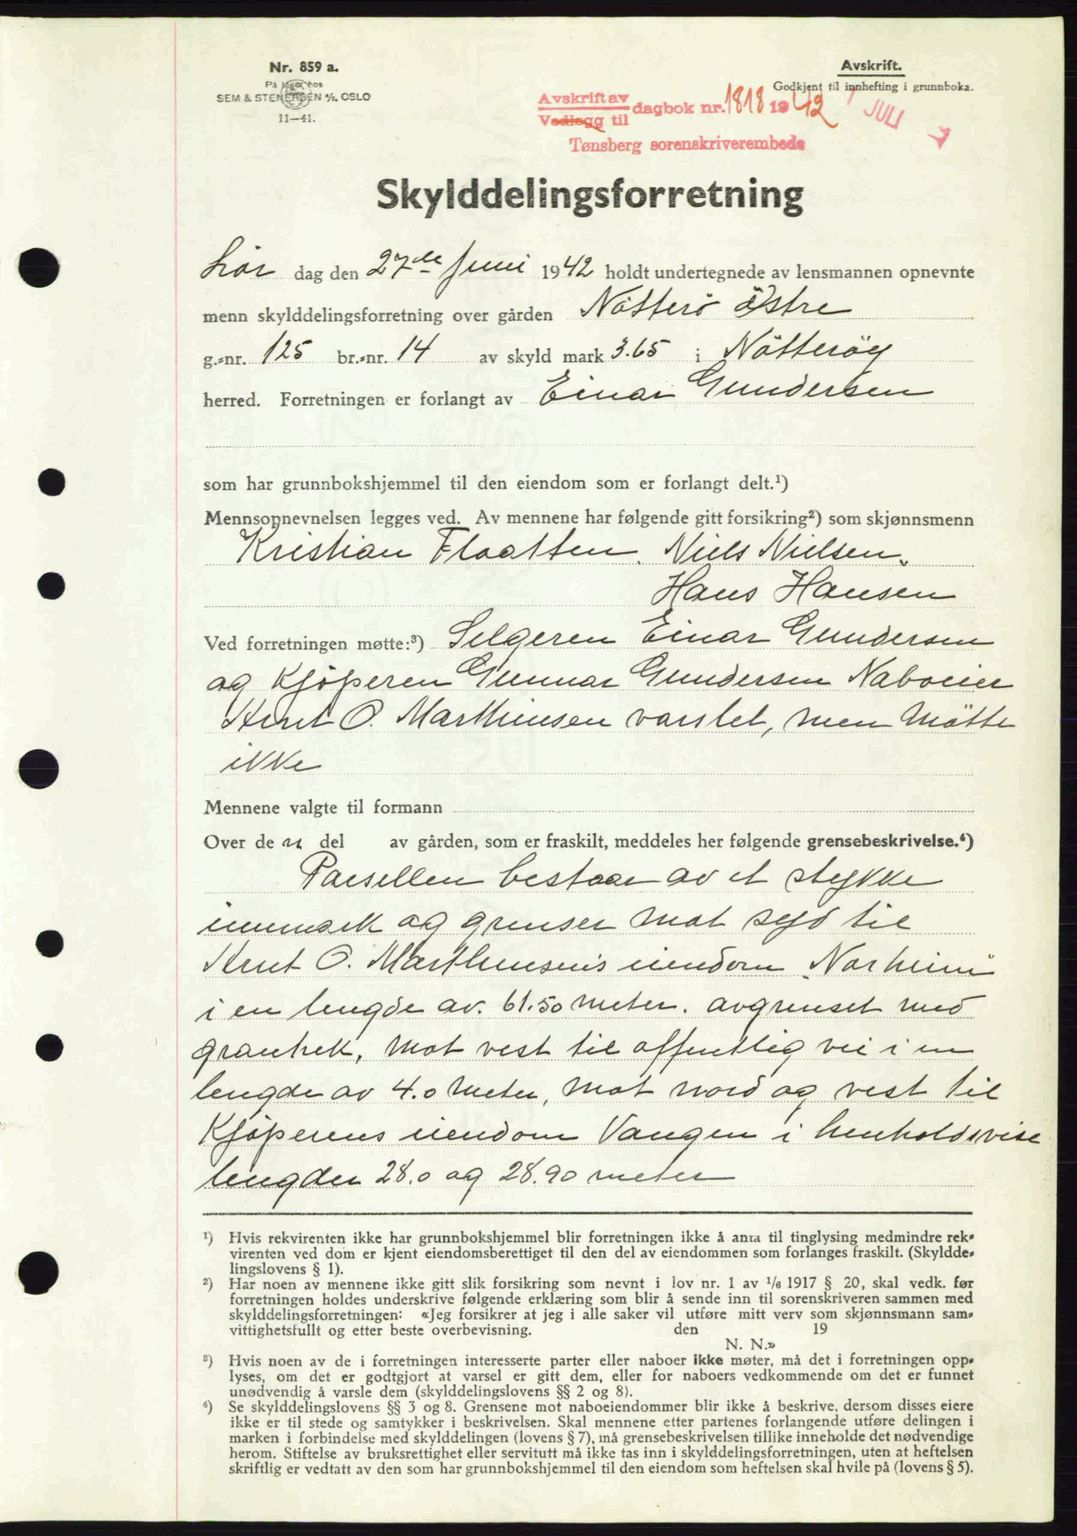 Nr. 859 a.
På lager hos
SEM & STENERSEN A/S, OSLO
11—41.
Avskrift.
Godkjent til innhefting i grunnboka.
Avskrift av
Vedlegg til
dagbok nr. 1818 1942
7 JULI
Tønsberg sorenskriverembede
Skylddelingsforretning
Lör dag den 27de Juni 1942 holdt undertegnede av lensmannen opnevnte
menn skylddelingsforretning over gården Nötterö Östre
g.-nr. 125 br.-nr. 14 av skyld mark 3.65 i Nötteröy
herred. Forretningen er forlangt av Einar Gundersen
som har grunnbokshjemmel til den eiendom som er forlangt delt.¹)
Mennsopnevnelsen legges ved. Av mennene har følgende gitt forsikring²) som skjønnsmenn
Kristian Flaatten, Niels Nielsen,
Hans Hansen
Ved forretningen møtte:³) Selgeren Einar Gundersen
og Kjöperen Gunnar Gundersen Naboeier
Arnt O. Marthinsen varslet, men Mötte
ikke
Mennene valgte til formann
Over de n del av gården, som er fraskilt, meddeles her følgende grensebeskrivelse.⁴)
Parsellen bestaar av et stykke
innmark og grenser mot syd til
Arnt O. Marthinsens eiendom „Norheim"
i en lengde av. 61.50 meter. avgrenset med
granhek, mot vest til offentlig vei i en
lengde av 4.0 Meter, mot nord og vest til
Kjöperens eiendom Vangen i henholdsvise
lengder 28.0 og 28.90 meter
¹) Hvis rekvirenten ikke har grunnbokshjemmel blir forretningen ikke å anta til tinglysing medmindre rek-
virenten ved dom er kjent eiendomsberettiget til den del av eiendommen som forlanges fraskilt. (Skyldde-
lingslovens § 1).
²) Har noen av mennene ikke gitt slik forsikring som nevnt i lov nr. 1 av ¹/₆ 1917 § 20, skal vedk. før
forretningen holdes underskrive følgende erklæring som blir å sende inn til sorenskriveren sammen med
skylddelingsforretningen: «Jeg forsikrer at jeg i alle saker vil utføre mitt verv som skjønnsmann sam-
vittighetsfullt og etter beste overbevisning. den 19
N. N.»
³) Hvis noen av de i forretningen interesserte parter eller naboer ikke møter, må det i forretningen opp-
lyses, om det er godtgjort at varsel er gitt dem, eller for naboers vedkommende om det er funnet
unødvendig å varsle dem (skylddelingslovens §§ 2 og 8).
⁴) Se skylddelingslovens §§ 3 og 8. Grensene mot naboeiendommer blir ikke å beskrive, dersom disses eiere
ikke er til stede og samtykker i beskrivelsen. Skal mennene etter partenes forlangende utføre delingen i
marken i forbindelse med skylddelingen (lovens § 7), må grensebeskrivelsen tillike inneholde det nødvendige
herom. Stiftelse av bruksrettighet eller servitutt må ikke tas inn i skylddelingsforretningen, uten at heftelsen
skriftlig er vedtatt av den som har grunnbokshjemmel til den eiendom som heftelsen skal hvile på (lovens § 5).